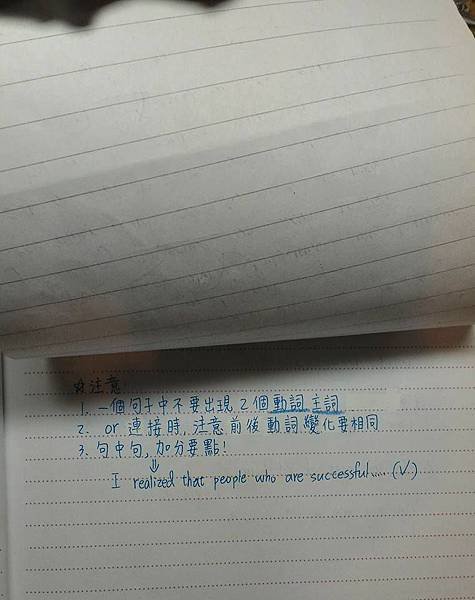 ☆注意
1. 一個句子中不要出現 2個動詞 主詞
2. or 連接時, 注意前後動詞變化要相同
3. 句中句, 加分要點!
↓
I realized that people who are successful..... (V)